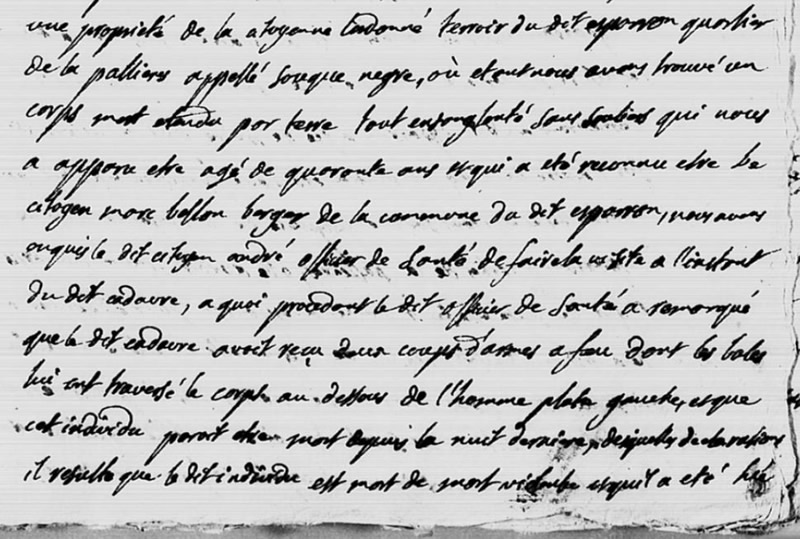 une propriété de la citoyenne Cadonné terroir du dit esparron quartier
de la palliere appellé souque negre, où etant nous avons trouvé un
corps mort etendu par terre tout ensanglanté sans souliers qui nous
a apparu etre agé de quarante ans et qui a eté reconnu etre le
citoyen marc bellon berger de la commune du dit esparron, nous avons
requis le dit citoyen andré officier de santé de faire la visite a l'instant
du dit cadavre, a quoi procedant le dit officier de santé a remarqué
que le dit cadavre avoit reçu deux coups d'armes a feu dont les bales
lui ont traversé le corps au dessous de l'homme plate gauche, et que
cet individu paroit etre mort depuis la nuit derniere, desquelles declarations
il resulte que le dit individu est mort de mort violente et qu'il a eté tué